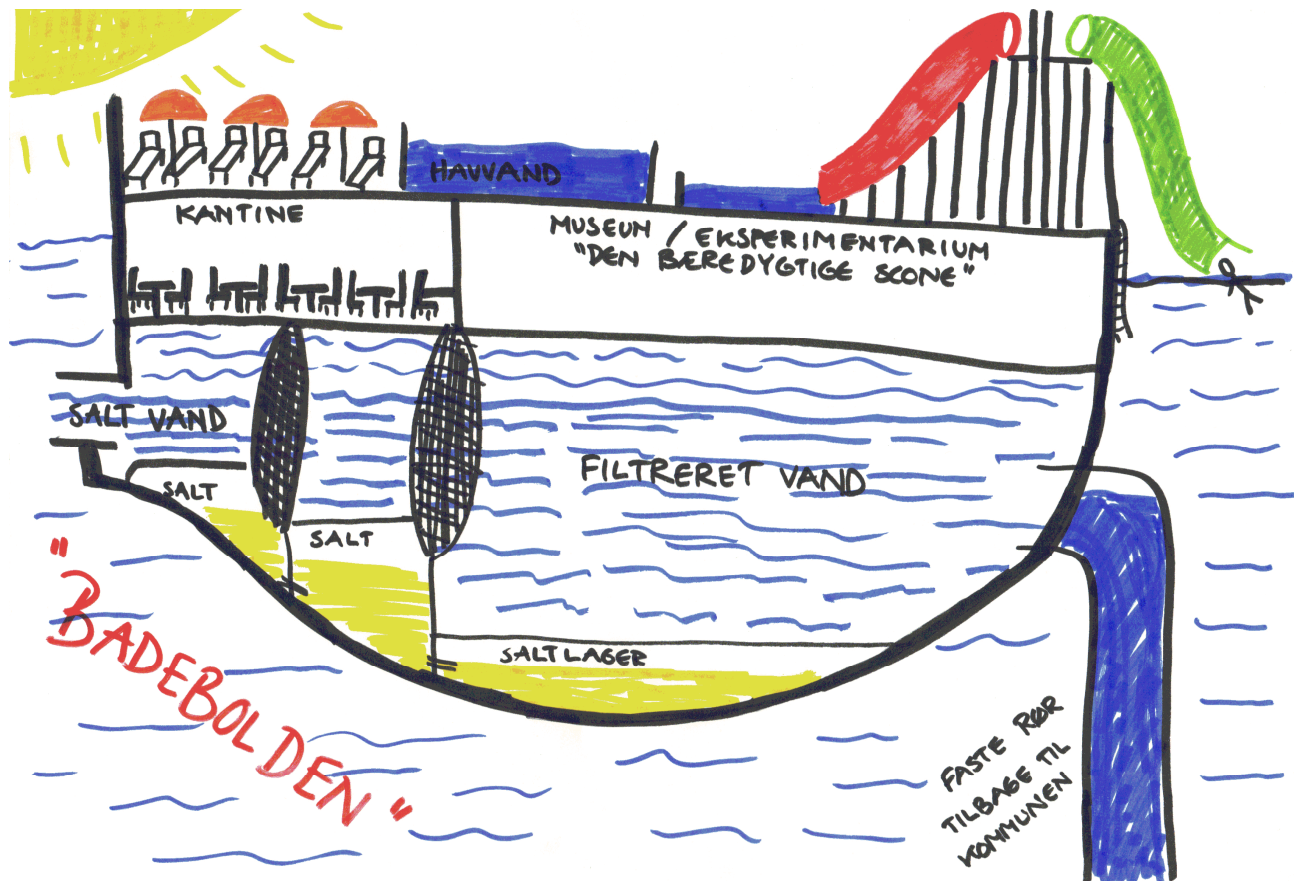 HAVVAND
KANTINE
MUSEUM / EKSPERIMENTARIUM
"DEN BÆREDYGTIGE SCONE"
SALT VAND
FILTRERET VAND
SALT
SALT
SALTLAGER
"BADEBOLDEN"
FASTE RØR
TILBAGE TIL
KOMMUNEN